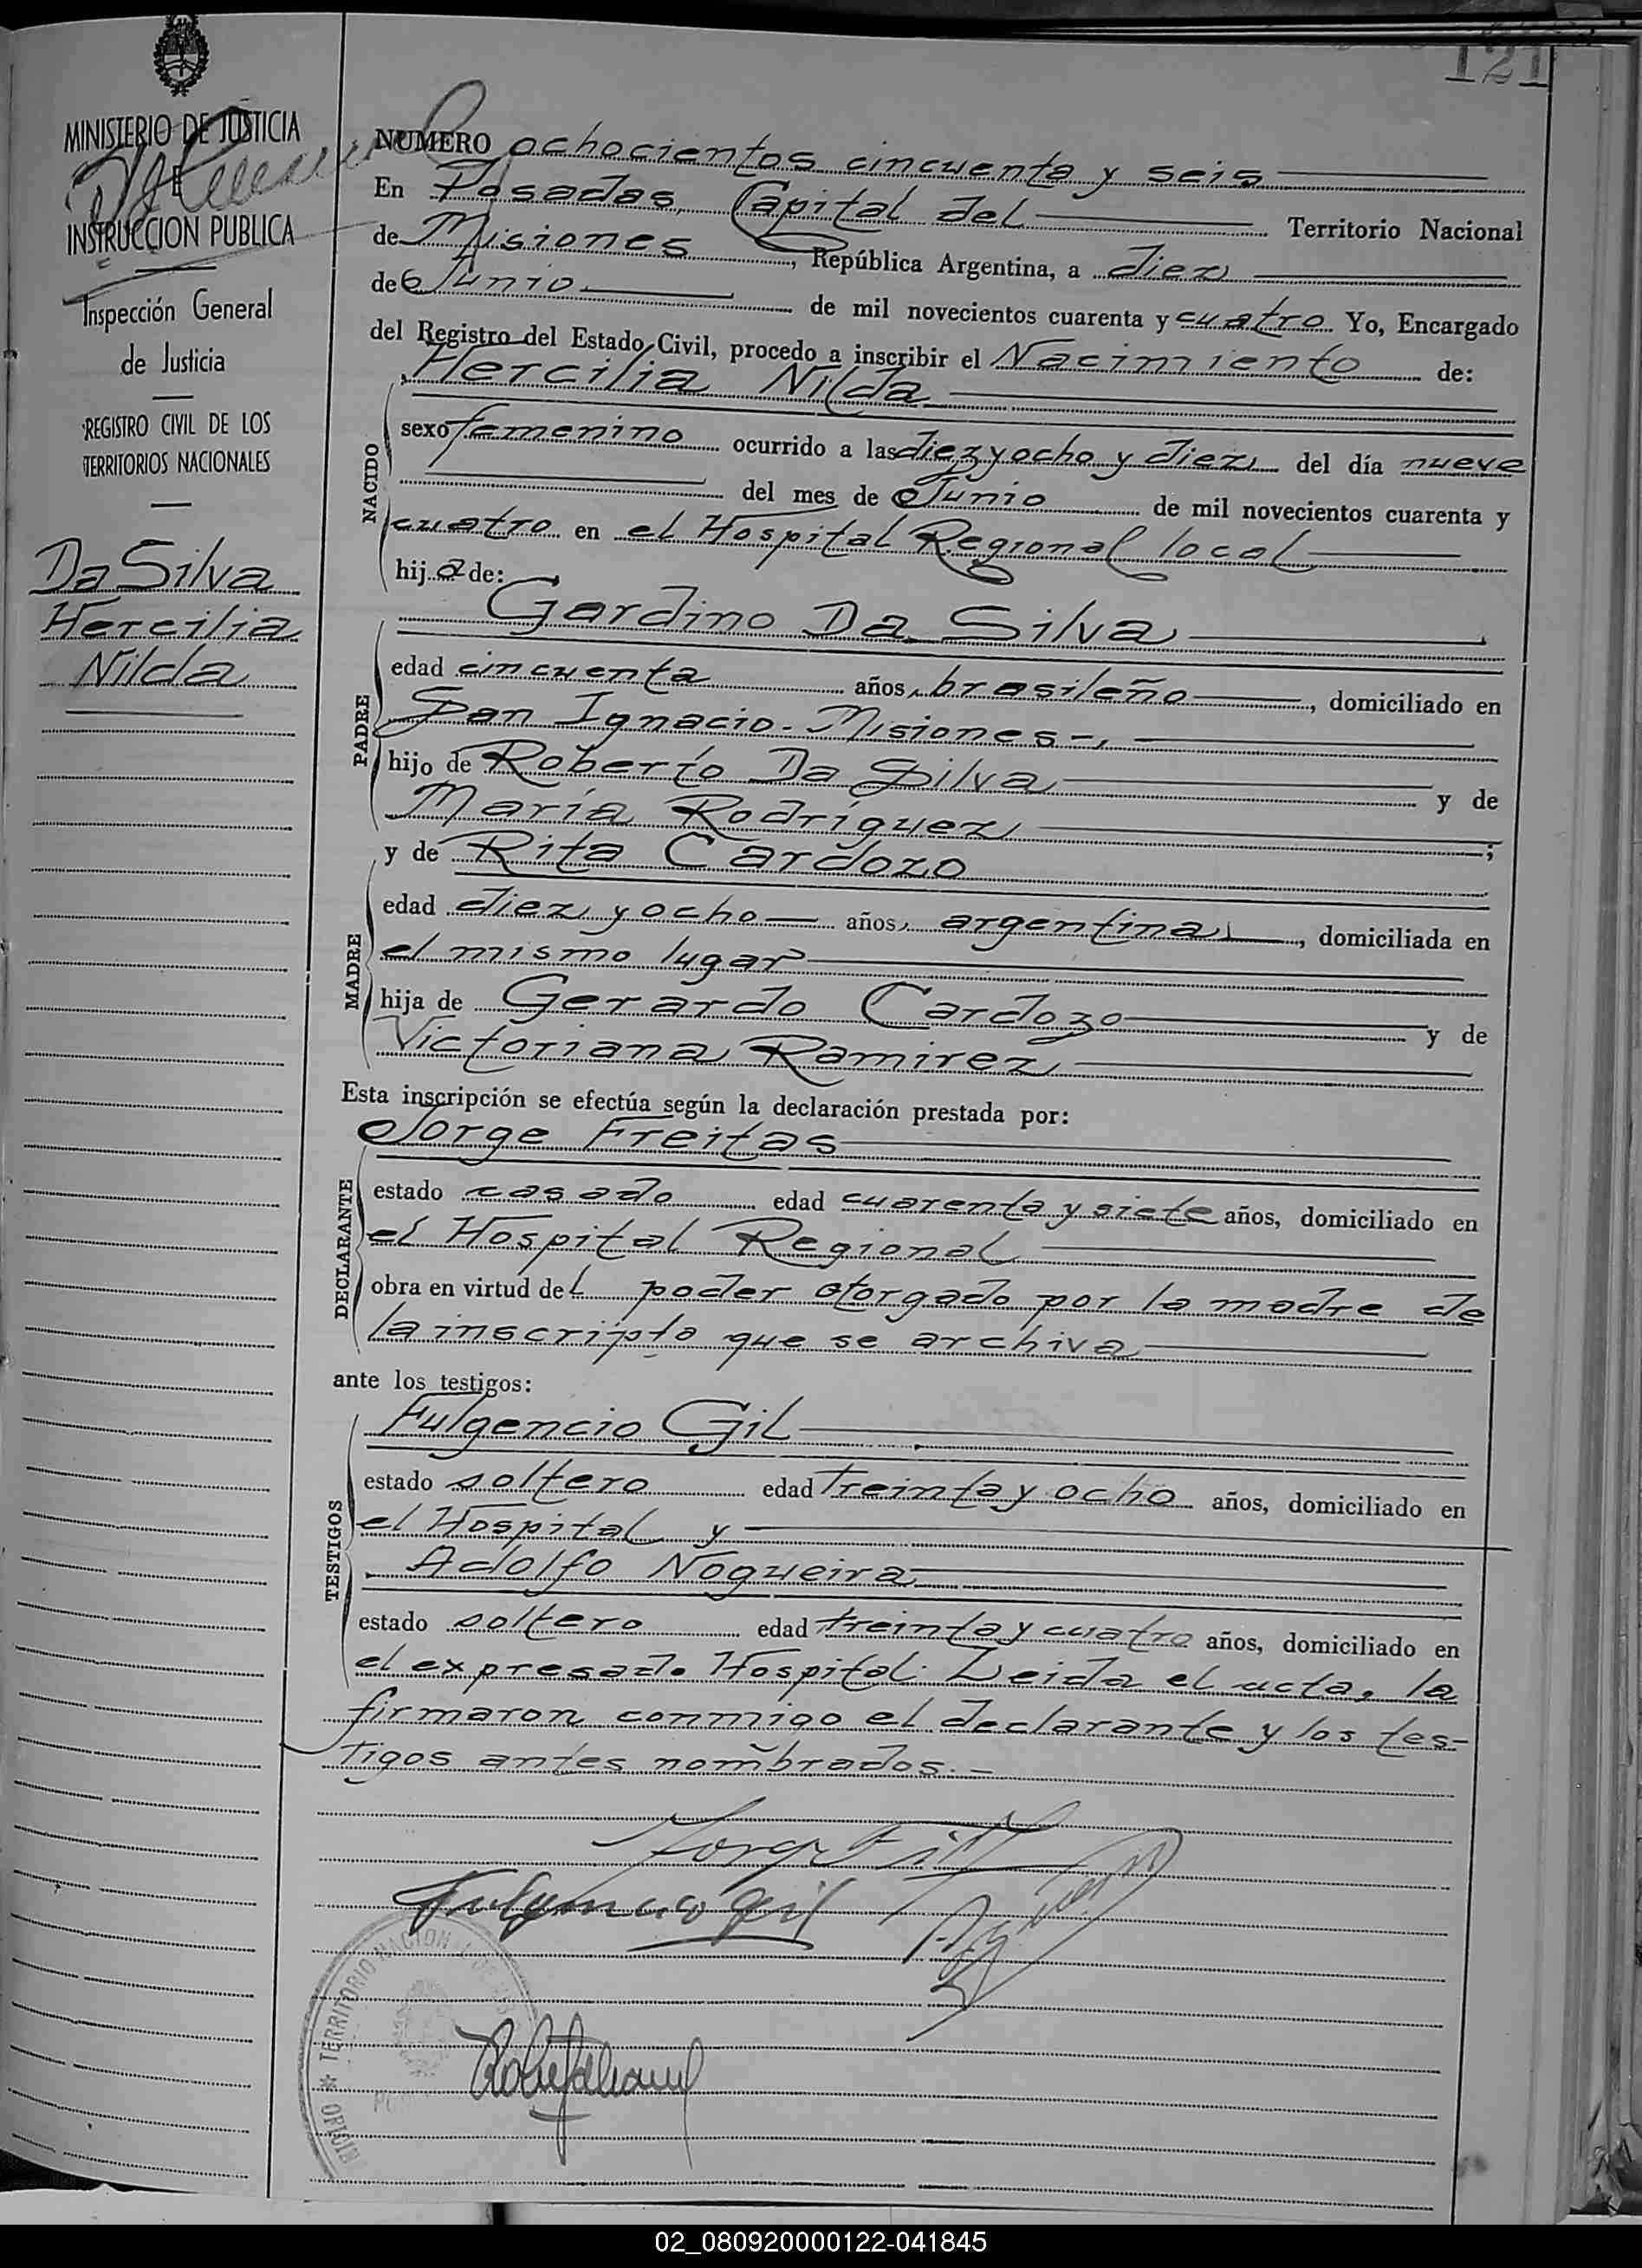 121
MINISTERIO DE JUSTICIA
E
INSTRUCCION PUBLICA
Inspección General
de Justicia
REGISTRO CIVIL DE LOS
TERRITORIOS NACIONALES
Da Silva
Hercilia
Nilda
NUMERO ochocientos cincuenta y seis
En Posadas, Capital del Territorio Nacional
de Misiones, República Argentina, a diez
de Junio de mil novecientos cuarenta y cuatro Yo, Encargado
del Registro del Estado Civil, procedo a inscribir el Nacimiento de:
Hercilia Nilda
NACIDO
sexo femenino ocurrido a las diez y ocho y diez del día nueve
del mes de Junio de mil novecientos cuarenta y
cuatro en el Hospital Regional local
hija de:
Gardino Da Silva
PADRE
edad cincuenta años, brasileño, domiciliado en
San Ignacio - Misiones -,
hijo de Roberto Da Silva y de
María Rodríguez;
y de Rita Cardozo
MADRE
edad diez y ocho años, argentina, domiciliada en
el mismo lugar
hija de Gerardo Cardozo y de
Victoriana Ramirez
Esta inscripción se efectúa según la declaración prestada por:
Jorge Freitas
DECLARANTE
estado casado edad cuarenta y siete años, domiciliado en
el Hospital Regional
obra en virtud del poder otorgado por la madre de
la inscripta que se archiva
ante los testigos:
Fulgencio Gil
TESTIGOS
estado soltero edad treinta y ocho años, domiciliado en
el Hospital y
Adolfo Nogueira
estado soltero edad treinta y cuatro años, domiciliado en
el expresado Hospital. Leida el acta, la
firmaron conmigo el declarante y los tes-
tigos antes nombrados.-
Fulgencio Gil
TERRITORIO NACIONAL
02_080920000122-041845